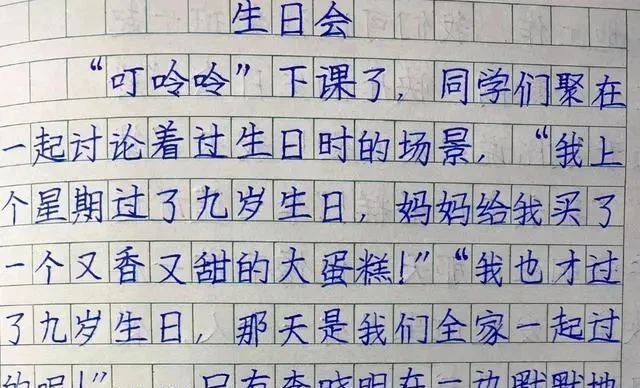 生日会
“叮呤呤”下课了，同学们聚在
一起讨论着过生日时的场景，“我上
个星期过了九岁生日，妈妈给我买了
一个又香又甜的大蛋糕！”“我也才过
了九岁生日，那天是我们全家一起过
的呢！”　只有李晓明在一边默默地